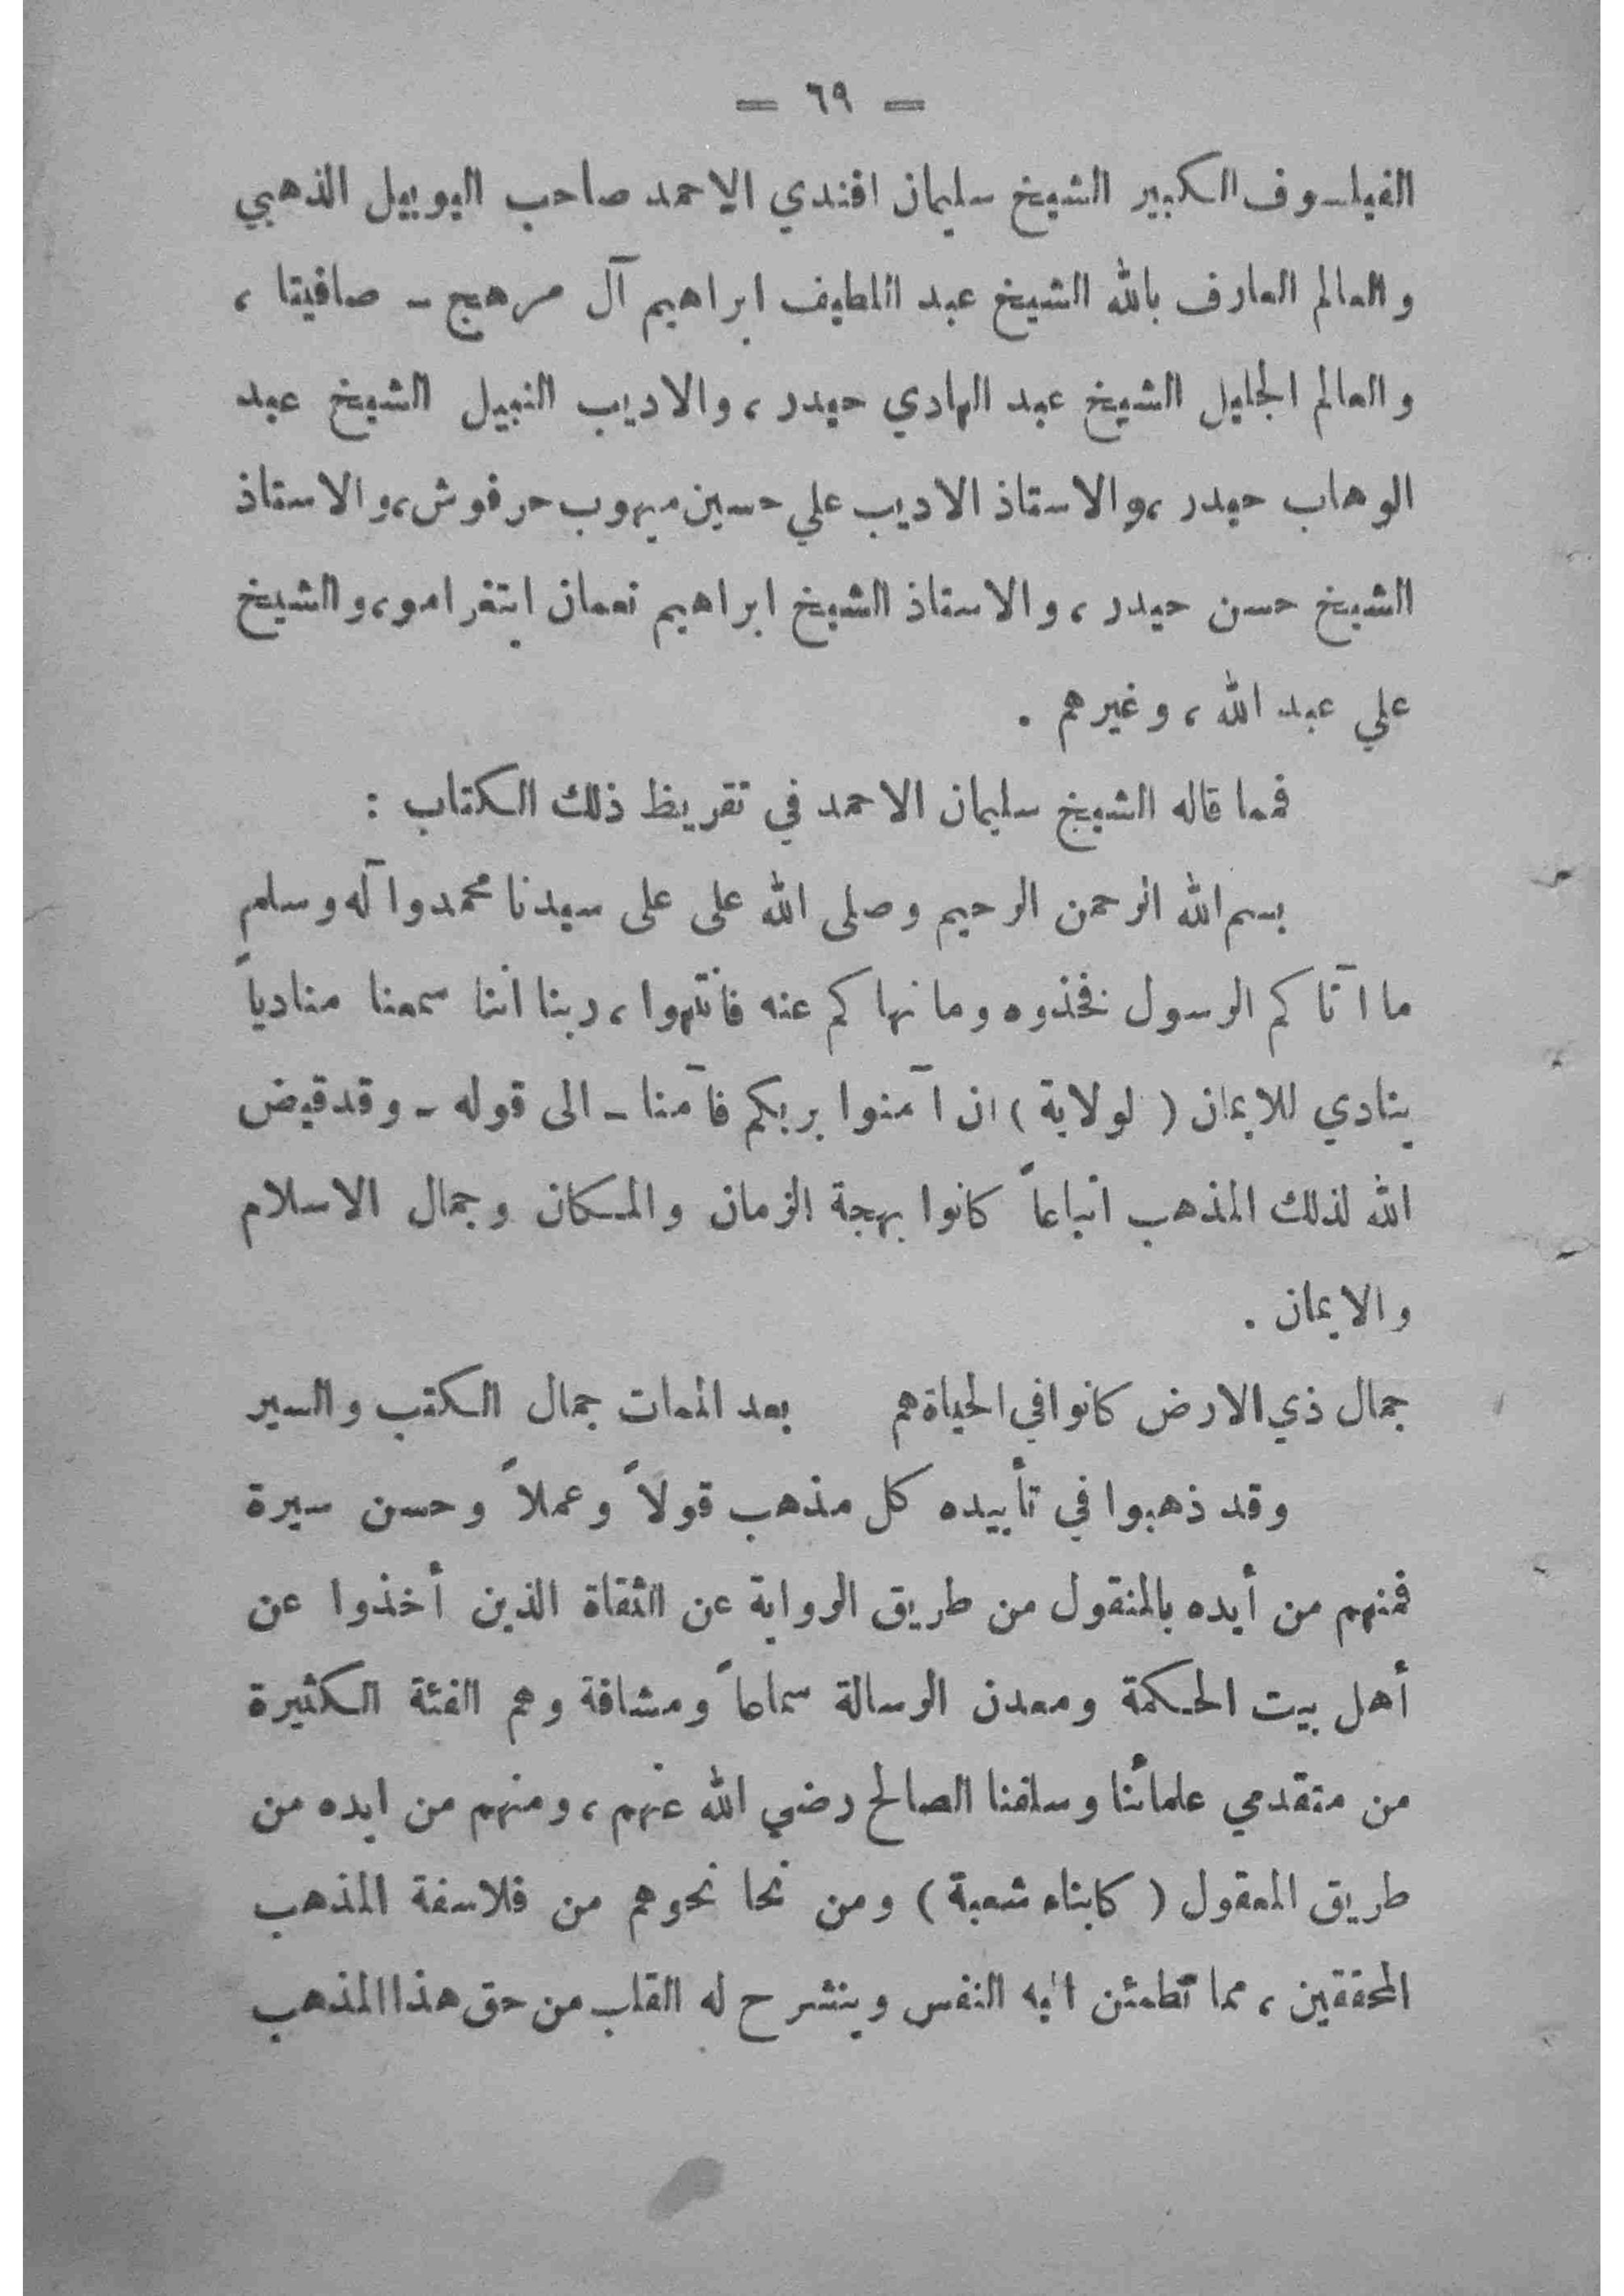 — ٦٩ —
الفيلسوف الكبير الشيخ سليمان افندي الاحمد صاحب اليوبيل الذهبي
والعالم العارف بالله الشيخ عبد اللطيف ابراهيم آل مرهج - صافيتا ،
والعالم الجليل الشيخ عبد الهادي حيدر ، والاديب النبيل الشيخ عبد
الوهاب حيدر ، والاستاذ الاديب علي حسين ميهوب حرفوش ، والاستاذ
الشيخ حسن حيدر ، والاستاذ الشيخ ابراهيم نعمان ابتغرامو ، والشيخ
علي عبد الله ، وغيرهم .
فمما قاله الشيخ سليمان الاحمد في تقريظ ذلك الكتاب :
بسم الله الرحمن الرحيم وصلى الله على على سيدنا محمد وآله وسلم
ما آتاكم الرسول فخذوه وما نهاكم عنه فانتهوا ، ربنا اننا سمعنا منادياً
ينادي للايمان ( لولاية ) ان آمنوا بربكم فآمنا - الى قوله - وقد قيض
الله لذلك المذهب اتباعاً كانوا بهجة الزمان والمكان وجمال الاسلام
والايمان .
جمال ذي الارض كانوا في الحياة هم بعد الممات جمال الكتب والسير
وقد ذهبوا في تأييده كل مذهب قولاً وعملاً وحسن سيرة
فمنهم من أيده بالمنقول من طريق الرواية عن الثقاة الذين أخذوا عن
أهل بيت الحكمة ومعدن الرسالة سماعاً ومشافة وهم الفئة الكثيرة
من متقدمي علمائنا وسلفنا الصالح رضي الله عنهم ، ومنهم من ايده من
طريق المعقول ( كابناء شعبة ) ومن نحا نحوهم من فلاسفة المذهب
المحققين ، مما تطمئن اليه النفس وينشرح له القلب من حق هذا المذهب